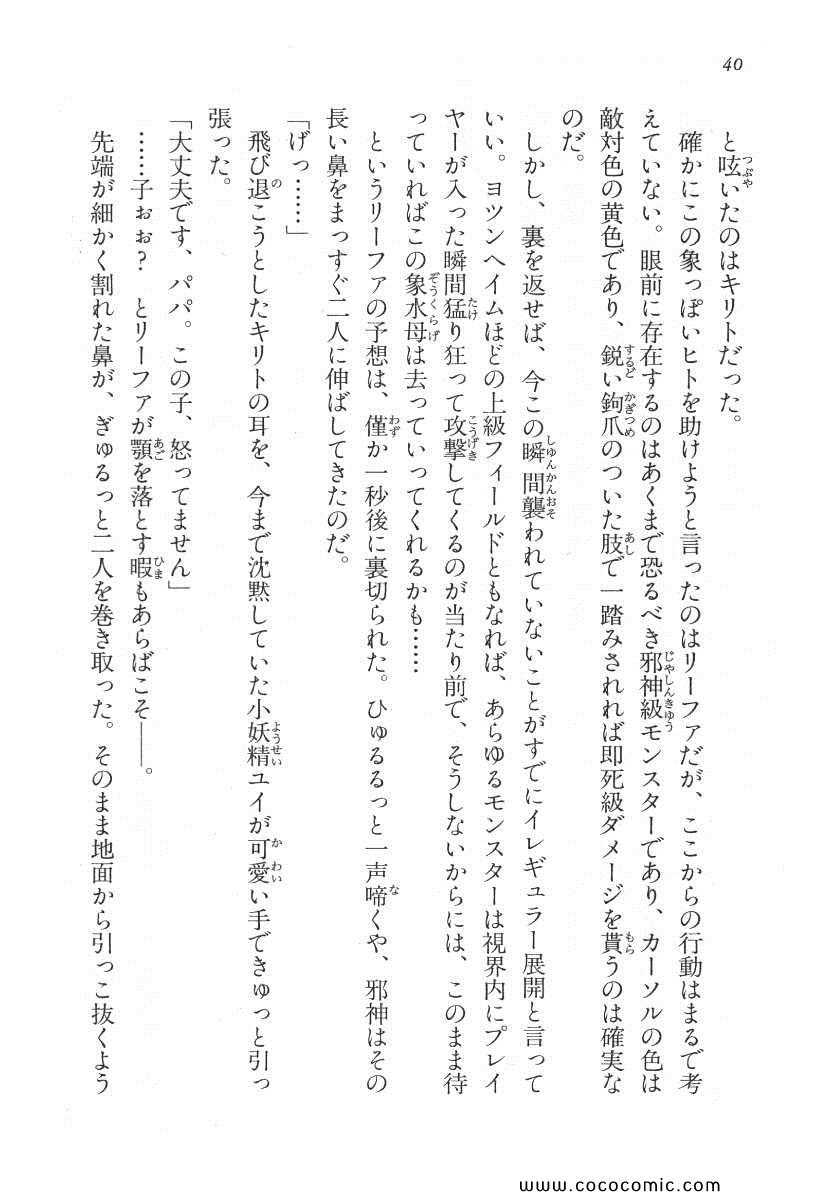 40
と呟いたのはキリトだった。
確かにこの象っぽいヒトを助けようと言ったのはリーファだが、ここからの行動はまるで考
えていない。眼前に存在するのはあくまで恐るべき邪神級モンスターであり、カーソルの色は
敵対色の黄色であり、鋭い鉤爪のついた肢で一踏みされれば即死級ダメージを貰うのは確実な
のだ。
しかし、裏を返せば、今この瞬間襲われていないことがすでにイレギュラー展開と言って
いい。ヨツンヘイムほどの上級フィールドともなれば、あらゆるモンスターは視界内にプレイ
ヤーが入った瞬間猛り狂って攻撃してくるのが当たり前で、そうしないからには、このまま待
っていればこの象水母は去っていってくれるかも……
というリーファの予想は、僅か一秒後に裏切られた。ひゅるるっと一声啼くや、邪神はその
長い鼻をまっすぐ二人に伸ばしてきたのだ。
「げっ……」
飛び退こうとしたキリトの耳を、今まで沈黙していた小妖精ユイが可愛い手できゅっと引っ
張った。
「大丈夫です、パパ。この子、怒ってません」
……子ぉぉ？　とリーファが顎を落とす暇もあらばこそ――。
先端が細かく割れた鼻が、ぎゅるっと二人を巻き取った。そのまま地面から引っこ抜くよう
www.cococomic.com